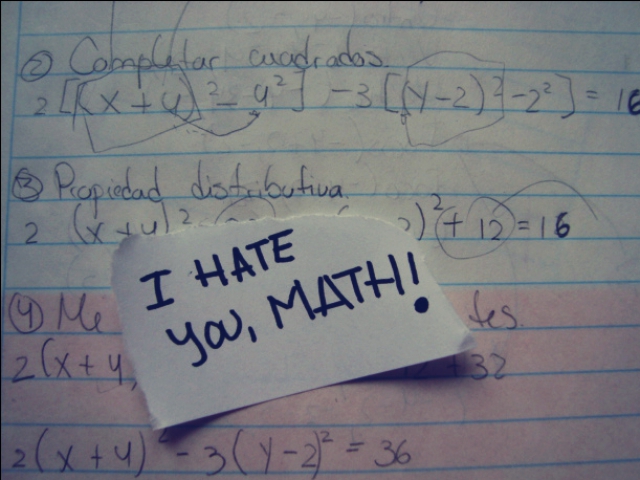 ② Completar cuadrados.
2 [(x+4)² - 4²] - 3 [(y-2)² - 2²] = 16
③ Propiedad distributiva
2 (x+4)² )² + 12 = 16
I HATE
YOU, MATH!
④
2(x+4 + 32
2(x+4)² - 3(y-2)² = 36